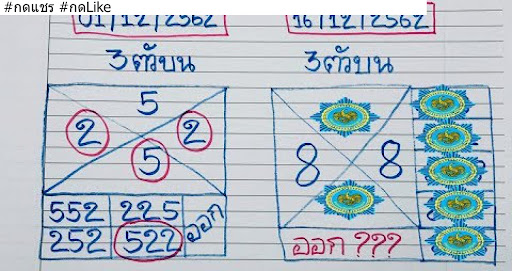 #กดแชร #กดLike
01/12/2562
16/12/2562
3ตัวบน
3ตัวบน
5
2 2
5
8 8
552 225
252 522
ออก
ออก ???